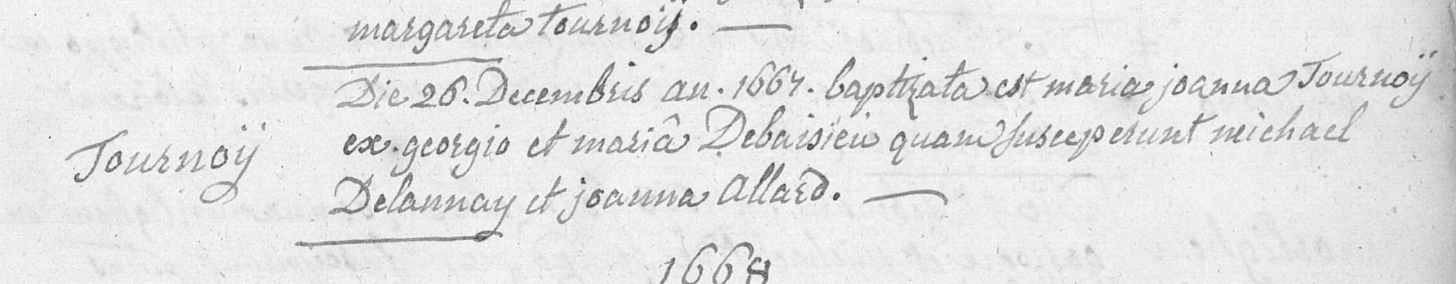 margareta tournoÿ. —
Die 26. Decembris an. 1667. baptizata est maria joanna Tournoÿ
Tournoÿ
ex georgio et mariâ Debaisieu quam susceperunt michael
Delannay et joanna Allard. —
1668